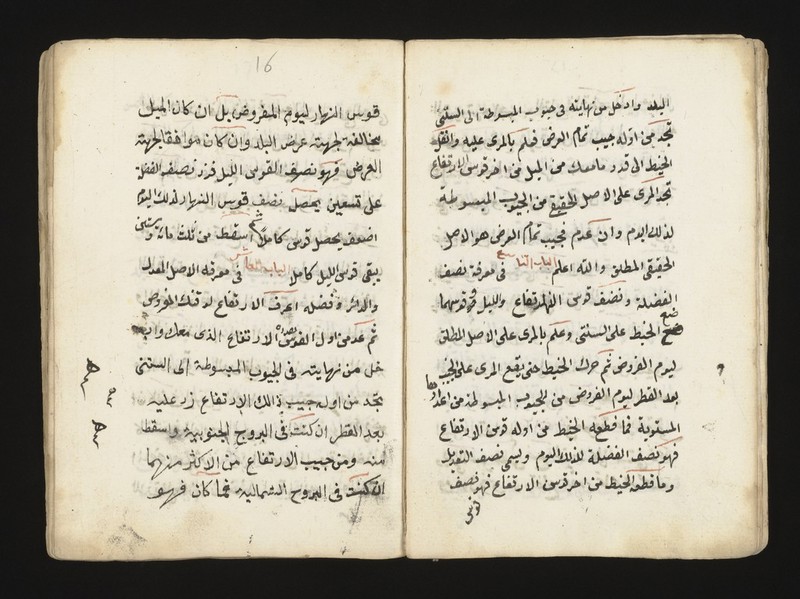 البلد وادخل من نهايته فى جيوب المبسوطة الى الستينى
تجد من اوله جيب تمام العرض فعلم بالمرى عليه وانقل
الخيط الى قدر مامعك من الميل من اخر قوس الارتفاع
تجد المرى على الاصل الحقيقى من الجيوب المبسوطة
لذلك اليوم وان عدم فجيب تمام العرض هو الاصل
الحقيقى المطلق والله اعلم الباب التاسع فى معرفة نصف
الفضلة ونصف قوس النهار والليل
ضع الخيط على الستينى وعلم بالمرى على الاصل المطلق
ليوم المفروض ثم حرك الخيط حتى يقع المرى على الجيب
بعد القطر ليوم المفروض من الجيوب المبسوطة من اعدادها
المستوية فما قطعه الخيط من اوله قوس الارتفاع
فهو نصف الفضلة لذلك اليوم ويسمى نصف التعديل
وما قطع الخيط من اخر قوس الارتفاع فهو نصف
قوس
16
قوس النهار ليوم المفروض بل ان كان الميل
مخالفة لجهة عرض البلد وان كان موافقا لجهة
العرض فهو نصف القوس الليل فزد نصف الفضلة
على تسعين يحصل نصف قوس النهار لذلك اليوم
اضعف يحصل قوس كاملا اسقط من ثلث مائة وستين
يبقى قوس الليل كاملا الباب العاشر فى معرفة الاصل المعدل
والدائر وفضله اعرف الارتفاع لوقتك المفروض
ثم عد من اول القوس بقدر الارتفاع الذى معك واد
خل من نهايته فى الجيوب المبسوطة الى الستينى
تجد من اوله جيب ذالك الارتفاع زد عليه
بعد القطر ان كنت فى البروج الجنوبية واسقط
منه ومن جيب الارتفاع من الاكثر منهما
ان كنت فى البروج الشمالية فما كان فهو